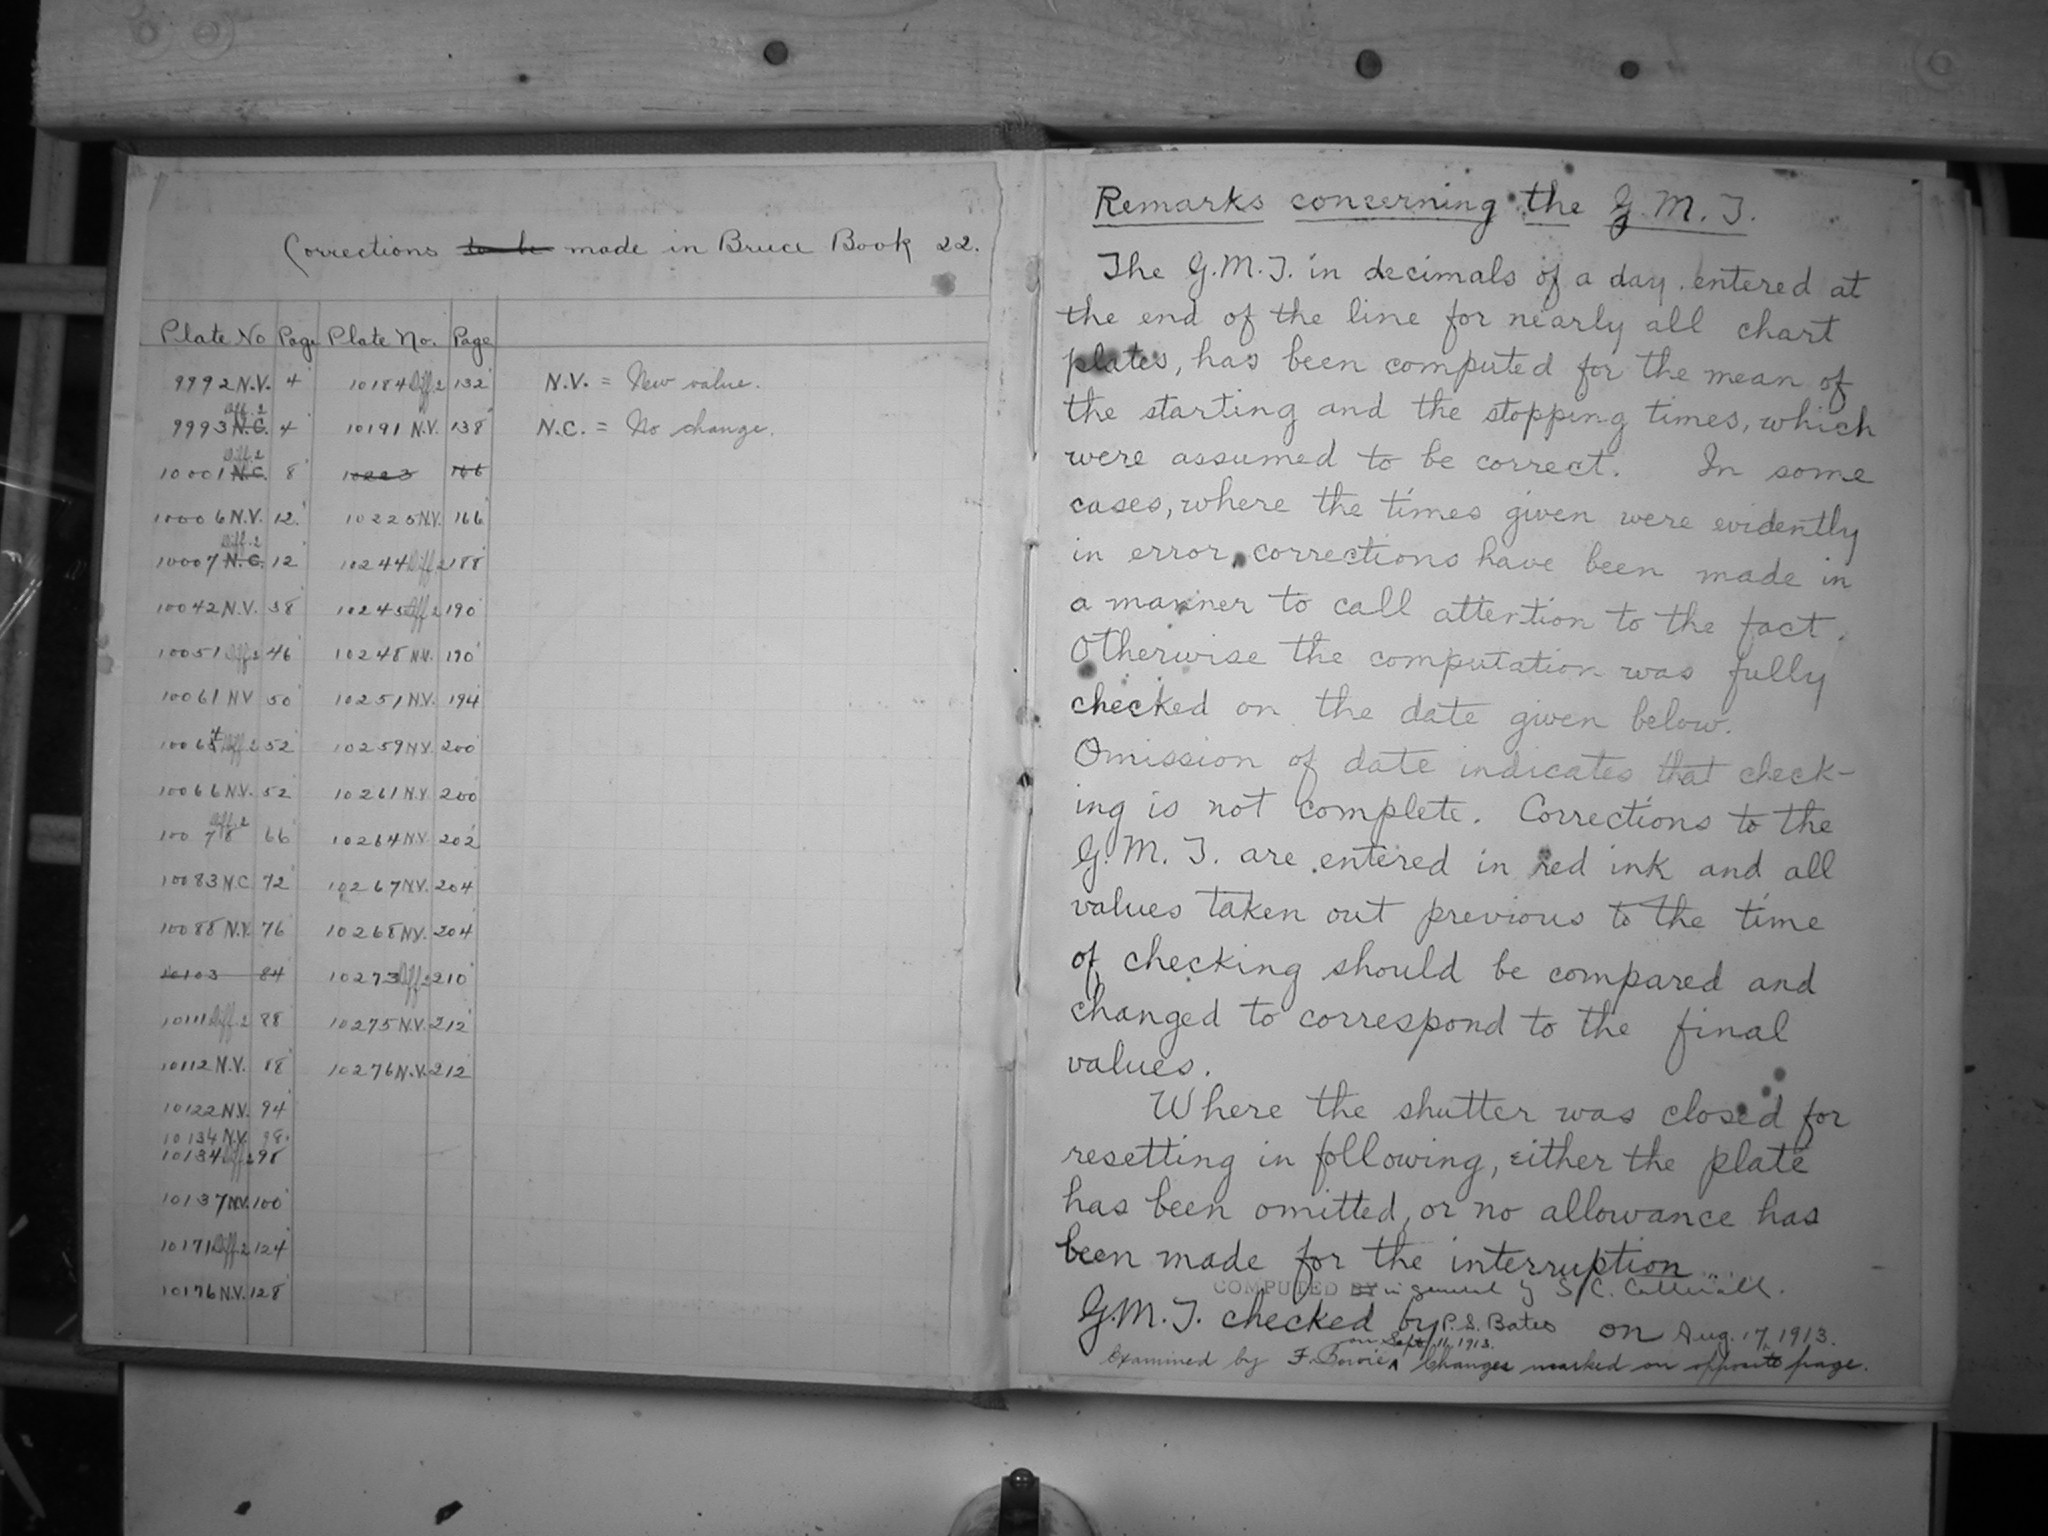 Corrections to be made in Bruce Book 22.
Plate No Page Plate No. Page
9992 N.V. 4 10184 Diff. 2 132 N.V. = New value.
Diff. 2
9993 N.C. 4 10191 N.V. 138 N.C. = No change.
Diff. 2
10001 N.C. 8 10223 166
10006 N.V. 12 10225 N.V. 166
Diff. 2
10007 N.C. 12 10244 Diff. 2 188
10042 N.V. 38 10245 Diff. 2 190
10051 Diff. 2 46 10248 N.V. 190
10061 NV 50 10251 N.V. 194
Diff. 2 52 10259 N.V. 200
10066 N.V. 52 10261 N.V. 200
Diff. 2
10078 66 10264 N.V. 202
10083 N.C. 72 10267 N.V. 204
10088 N.V. 76 10268 N.V. 204
10103 84 10273 Diff. 2 210
10111 Diff. 2 88 10275 N.V. 212
10112 N.V. 88 10276 N.V. 212
10122 N.V. 94
10134 N.V. 98
10134 Diff. 2 98
10137 N.V. 100
10171 Diff. 2 124
10176 N.V. 128
Remarks concerning the G.M.T.
The G.M.T. in decimals of a day, entered at
the end of the line for nearly all chart
plates, has been computed for the mean of
the starting and the stopping times, which
were assumed to be correct. In some
cases, where the times given were evidently
in error, corrections have been made in
a manner to call attention to the fact.
Otherwise the computation was fully
checked on the date given below.
Omission of date indicates that check-
ing is not complete. Corrections to the
G.M.T. are entered in red ink and all
values taken out previous to the time
of checking should be compared and
changed to correspond to the final
values.
Where the shutter was closed for
resetting in following, either the plate
has been omitted, or no allowance has
been made for the interruption
COMPUTED BY in general by S. C.
G.M.T. checked by P. S. Bates on Aug. 17, 1913.
on Sept. 11, 1913.
Examined by F. Bowie ^ Changes marked on opposite page.